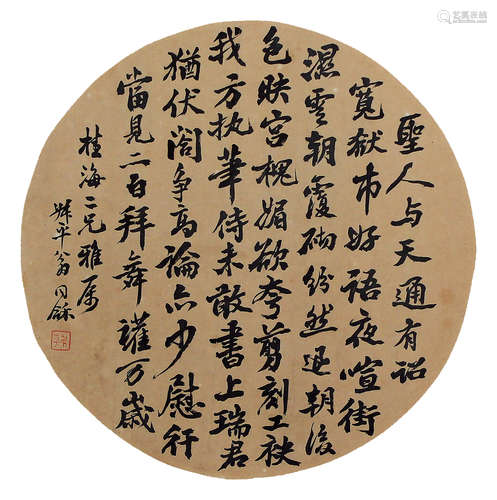 聖人与天通有詔
寬獄市好語夜喧街
濕雲朝覆砌紛然退朝後
色映宮槐媚欲夸剪刻工袂
我方执筆侍未敢書上瑞君
猶伏閤争高論亦少慰行
當見二白拜舞讙万歲
桂海二兄雅属
叔平翁同龢